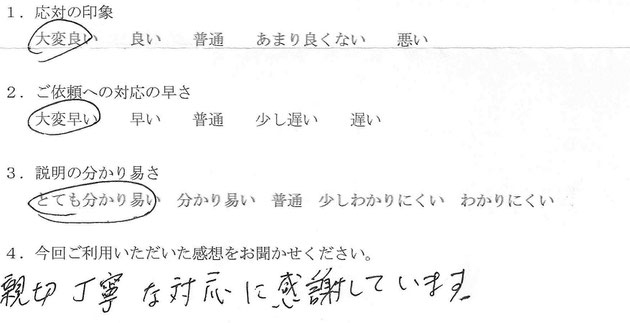 １．応対の印象
大変良い　良い　普通　あまり良くない　悪い
２．ご依頼への対応の早さ
大変早い　早い　普通　少し遅い　遅い
３．説明の分かり易さ
とても分かり易い　分かり易い　普通　少しわかりにくい　わかりにくい
４．今回ご利用いただいた感想をお聞かせください。
親切丁寧な対応に感謝しています。